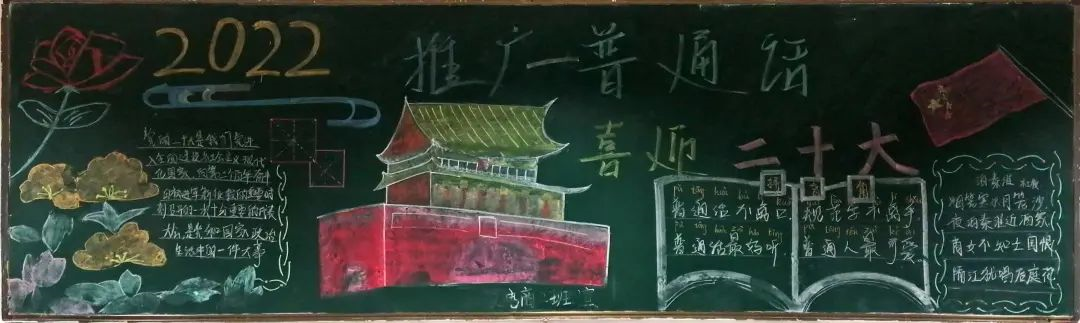 2022
推广普通话
喜迎二十大
党的二十大是我们党进
入全面建设社会主义现代
化国家、向第二个百年奋斗
目标进军新征程的重要时
刻召开的一次十分重要的代表
大会,是党和国家政治
生活中的一件大事
普通话不离口
普通话最好听
规范字不离手
普通人最可爱
泊秦淮 杜牧
烟笼寒水月笼沙
夜泊秦淮近酒家
商女不知亡国恨
隔江犹唱后庭花